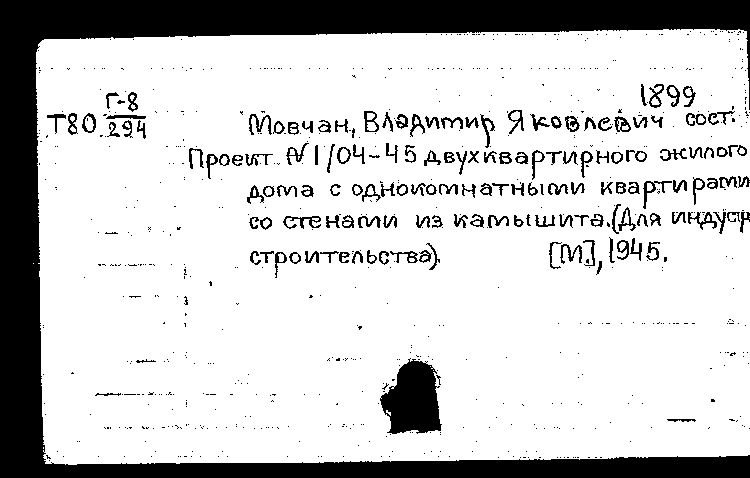 1899
Г-8
Т80 294
Мовчан, Владимир Яковлевич сост.
Проект № 1/04-45 двухквартирного жилого
дома с однокомнатными квартирами
со стенами из камышита. (Для индустр
строительства). [М.], 1945.